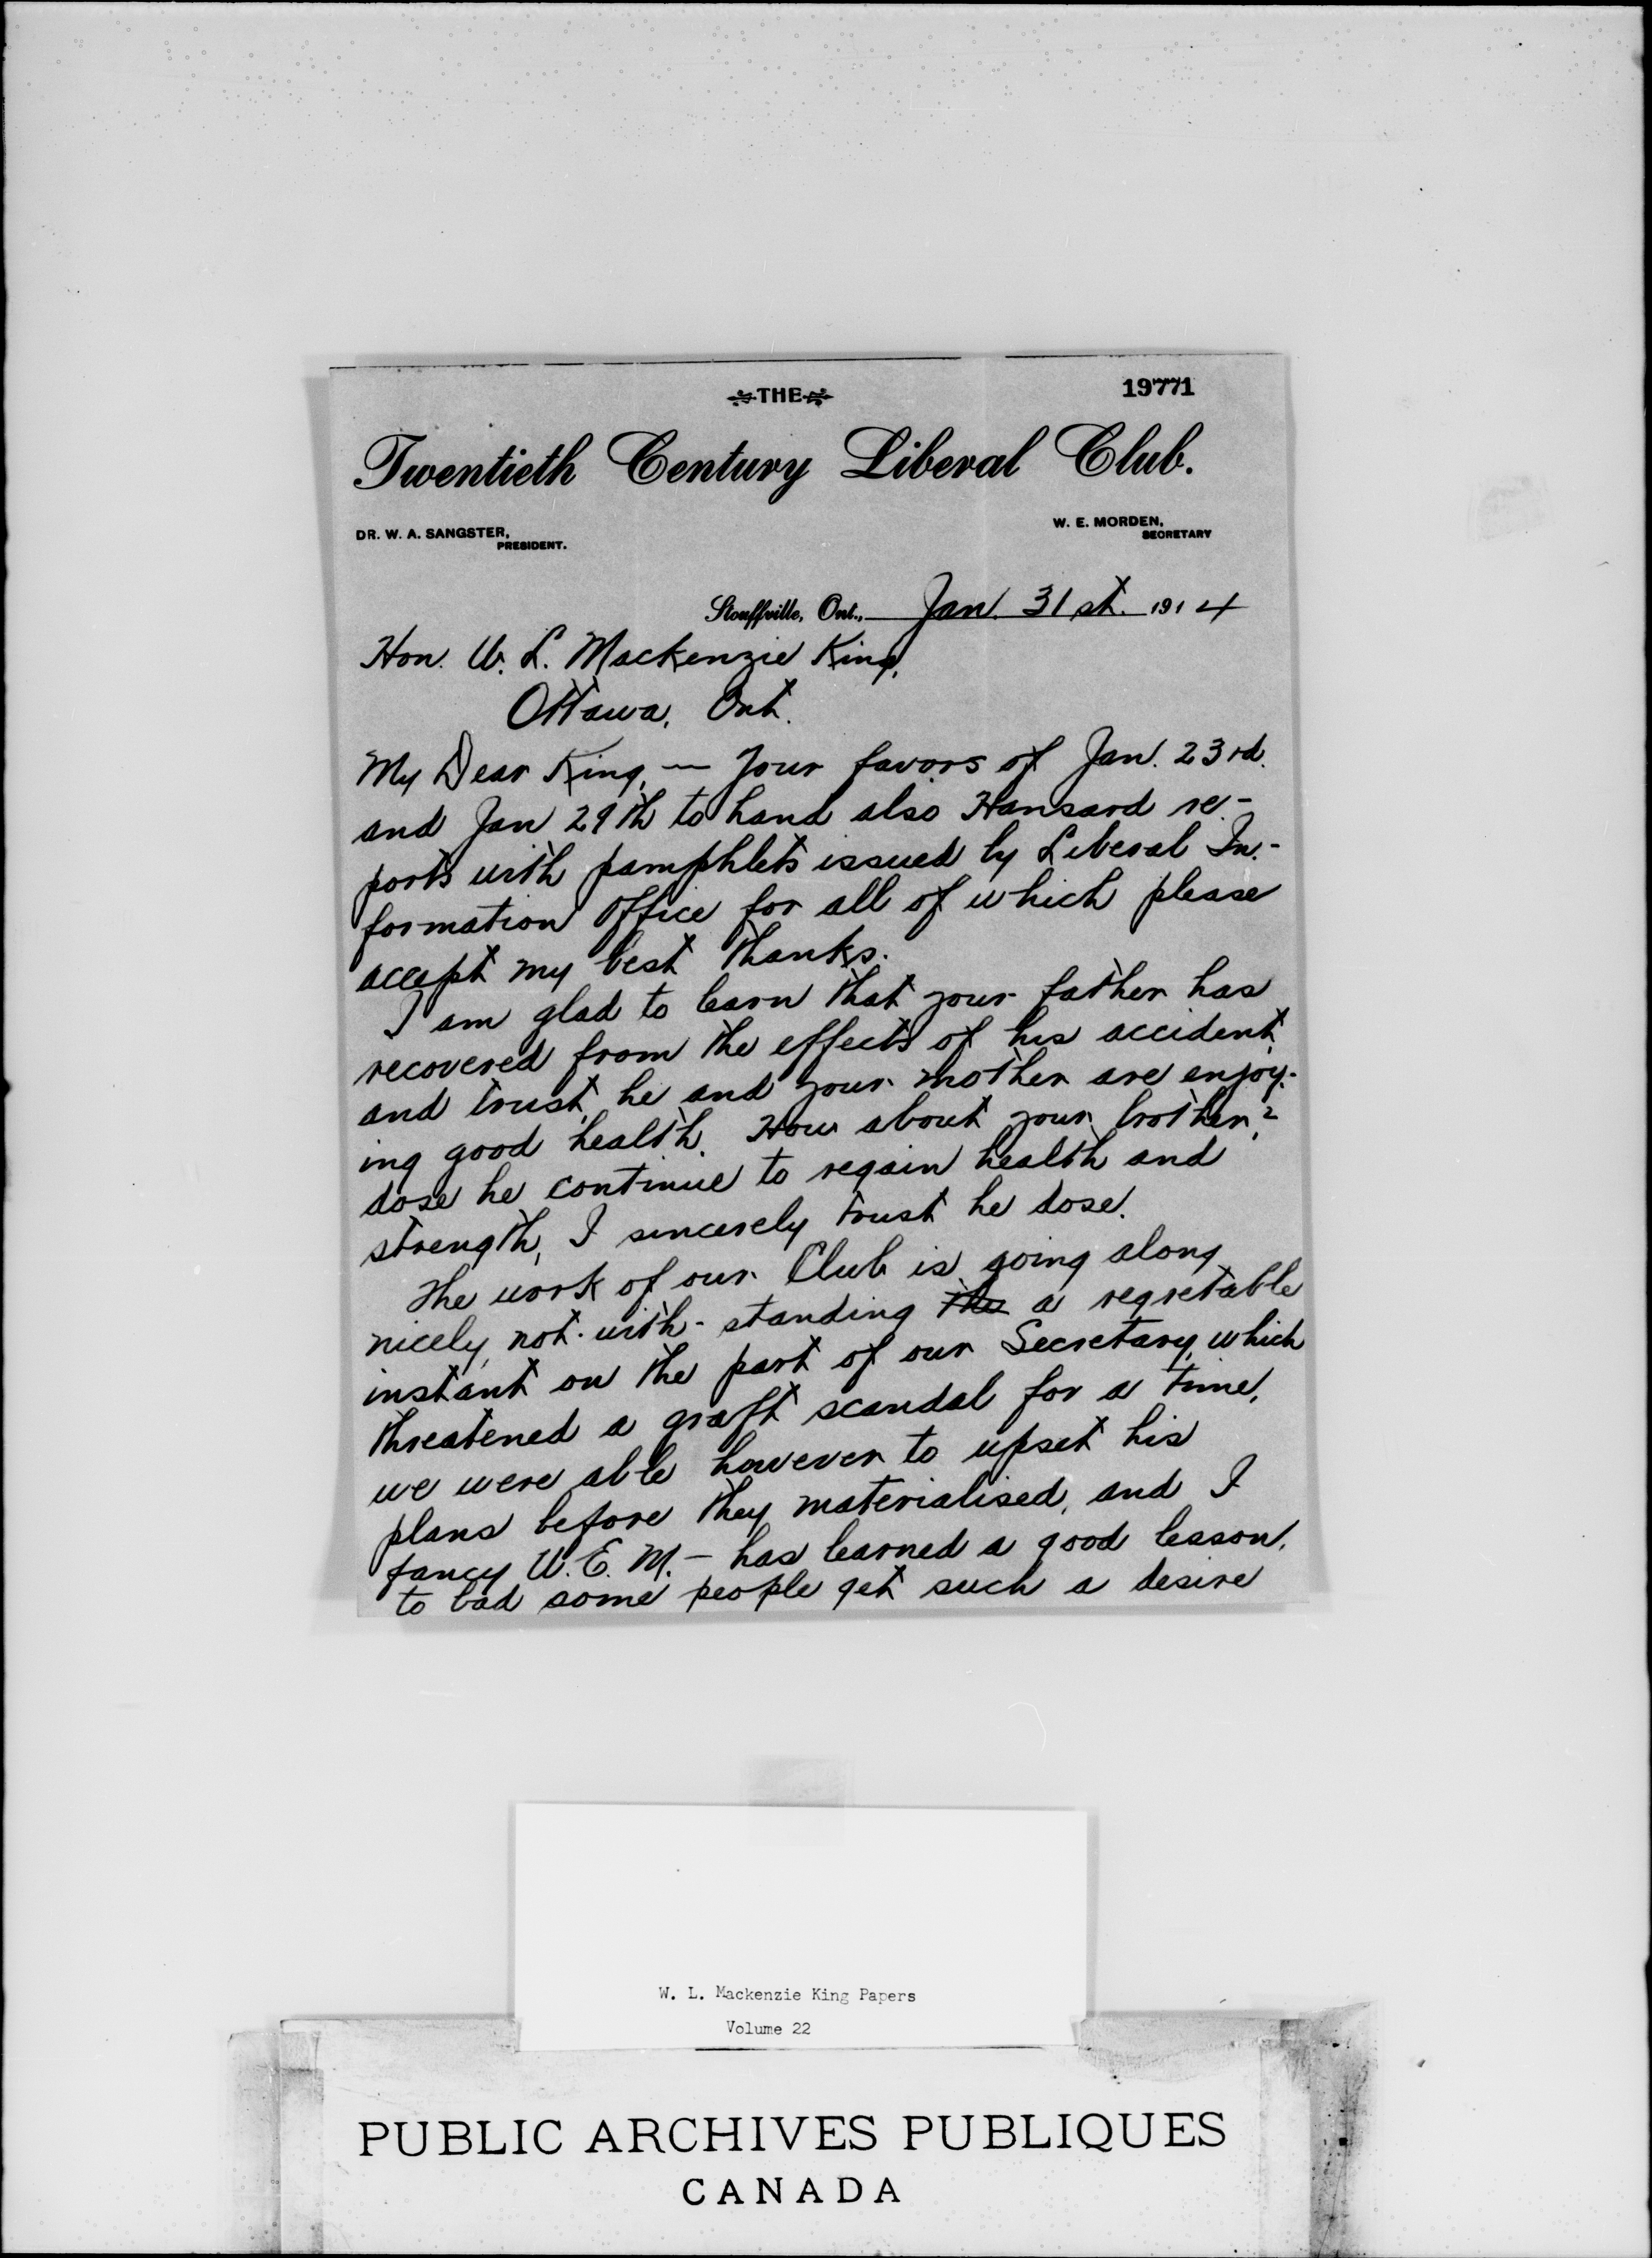 THE
19771
Twentieth Century Liberal Club.
DR. W. A. SANGSTER,
PRESIDENT.
W. E. MORDEN,
SECRETARY
Stouffville, Ont., Jan. 31st. 1914
Hon. W. L. Mackenzie King,
Ottawa, Ont.
My Dear King, — Your favors of Jan. 23rd.
and Jan 29th to hand also Hansard re-
ports with pamphlets issued by Liberal In-
formation Office for all of which please
accept my best thanks.
I am glad to learn that your father has
recovered from the effects of his accident
and trust he and your mother are enjoy-
ing good health. How about your brother?
dose he continue to regain health and
strength, I sincerely trust he dose.
The work of our Club is going along
nicely, not-with-standing the a regretable
instant on the part of our Secretary, which
threatened a graft scandal for a time,
we were able however to upset his
plans before they materialised, and I
fancy W. E. M. — has learned a good lesson.
to bad some people get such a desire
W. L. Mackenzie King Papers
Volume 22
PUBLIC ARCHIVES PUBLIQUES
CANADA